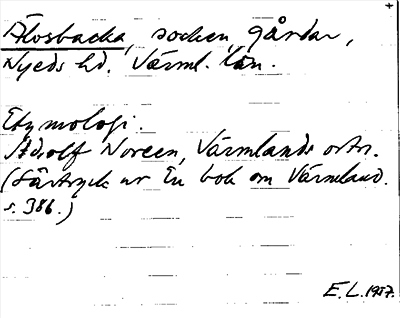 +
Älvsbacka, socken, gårdar,
Nyeds hd. Värml. län.
Etymologi.
Adolf Noreen, Värmlands ortn.
(Särtryck ur En bok om Värmland.
s. 386.)
E.L. 1917.